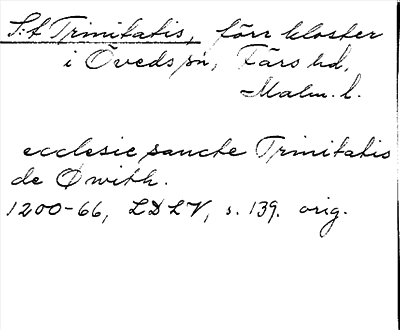 S:t Trinitatis, förr kloster
i Öveds sn, Färs hd,
Malm. l.
ecclesie sancte Trinitatis
de Øwith.
1200-66, LDLV, s. 139. orig.